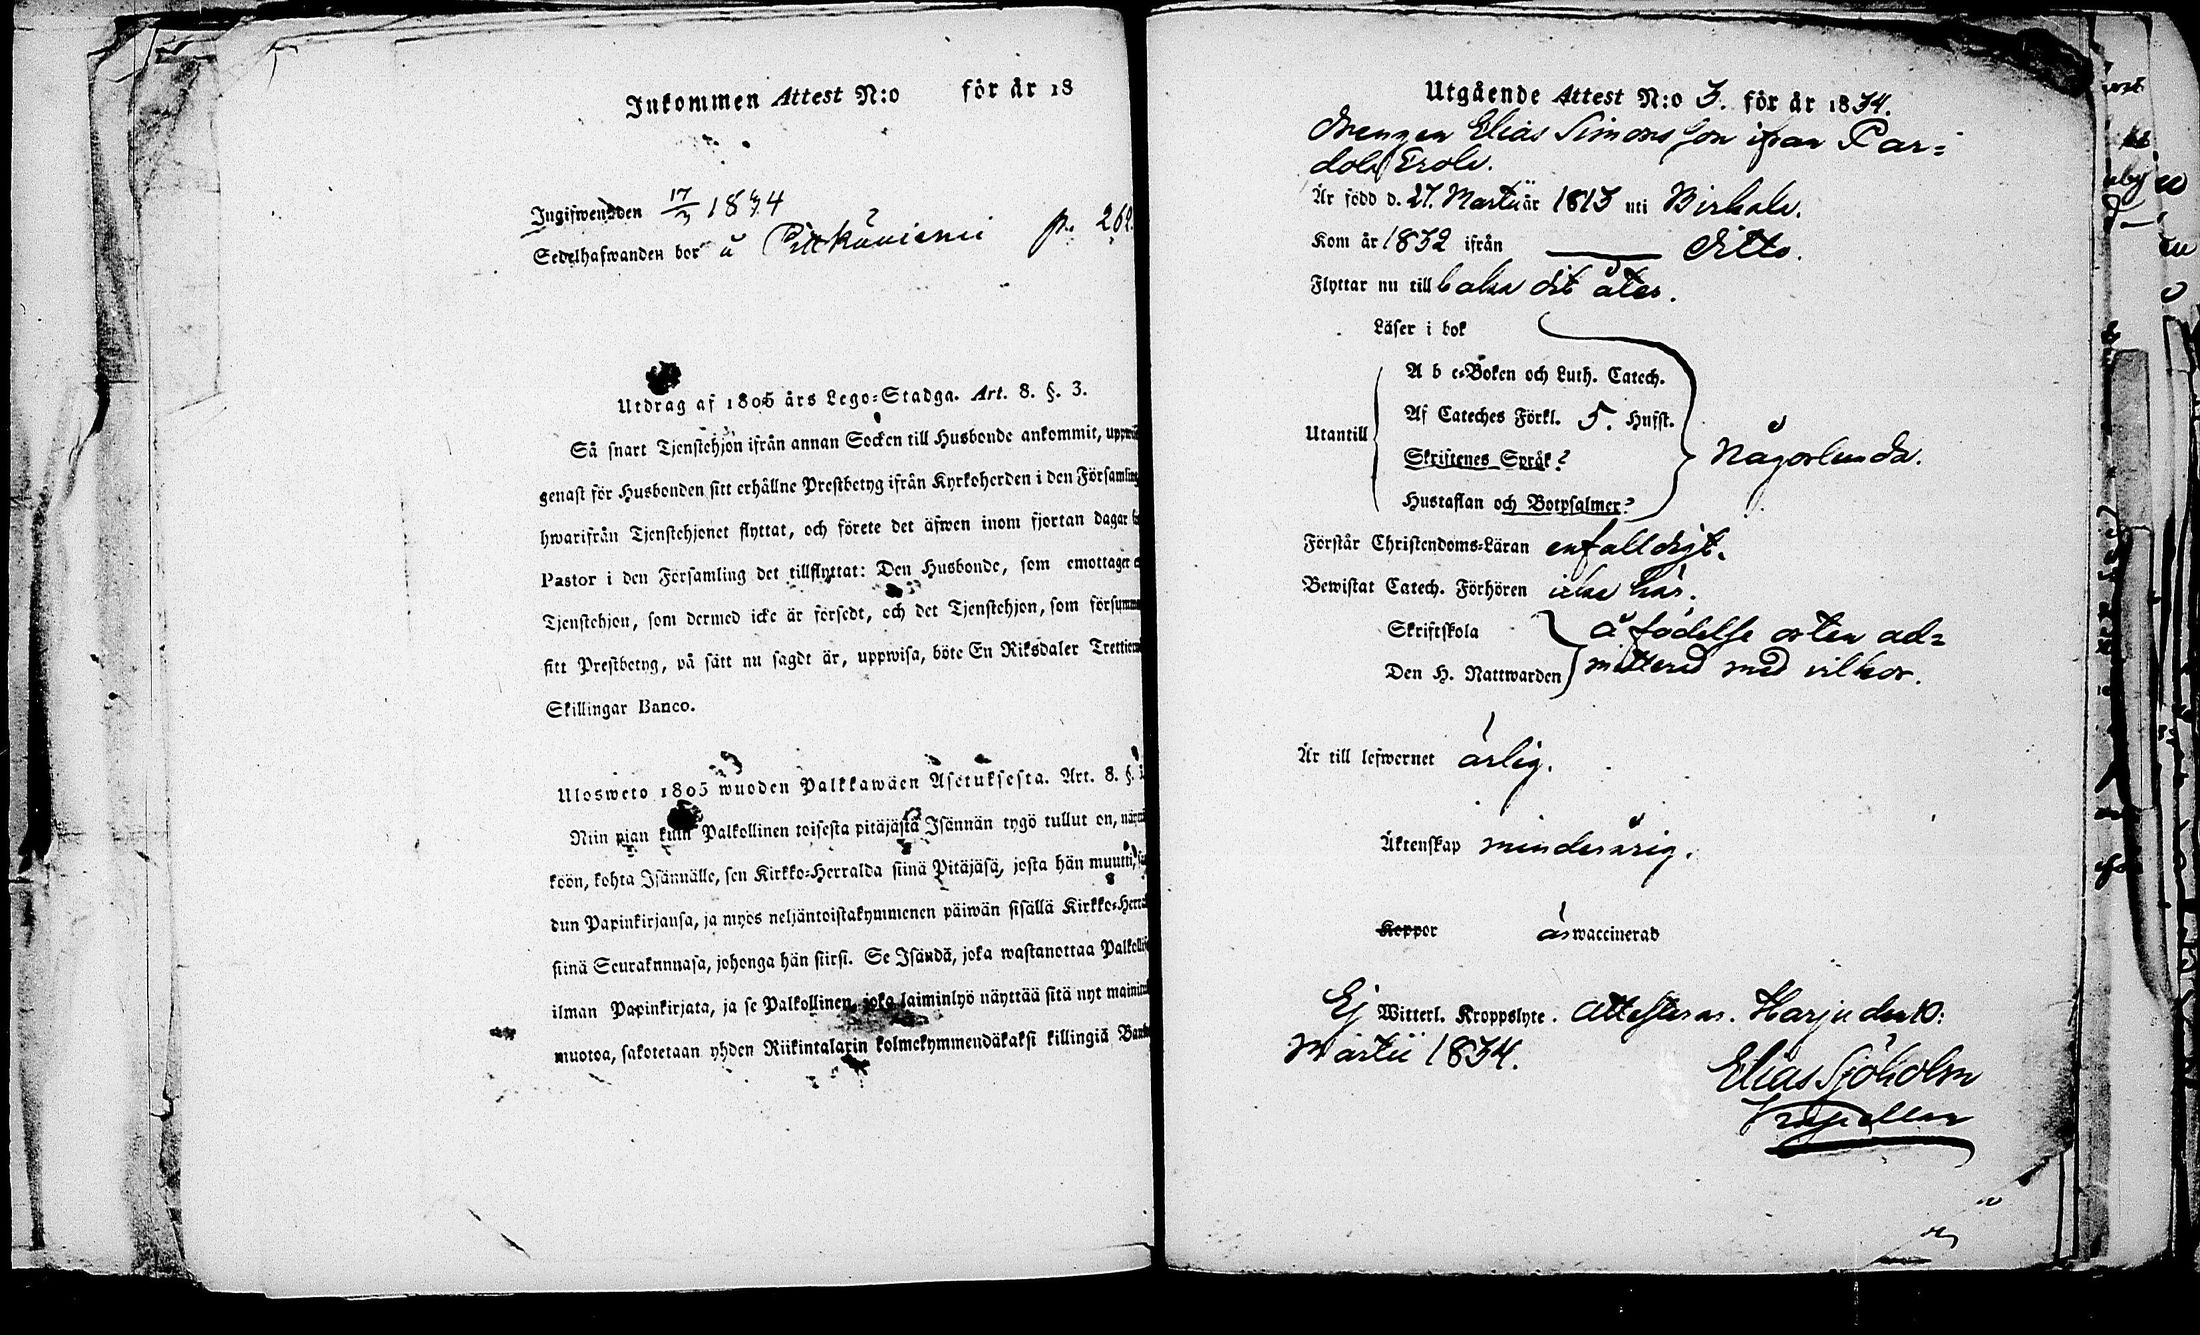 Inkommen Attest N:o för år 18
Ingifwen den 17/3 1834
Sedelhafwanden bor å Pitkäniemi p. 262.
Utdrag af 1805 års Lego-Stadga. Art. 8. §. 3.
Så snart Tjenstehjon ifrån annan Socken till Husbonde ankommit,
genast för Husbonden sitt erhållne Prestbetyg ifrån Kyrkoherden i den Församling
hwarifrån Tjenstehjonet flyttat, och förete det äfwen inom fjortan dagar
Pastor i den Församling det tillflyttat: Den Husbonde, som emottager
Tjenstehjon, som dermed icke är försedt, och det Tjenstehjon, som försumm
sitt Prestbetyg, på sätt nu sagdt är, uppwisa, böte En Riksdaler Trettie
Skillingar Banco.
Ulosweto 1805 wuoden Palkkawäen Asetuksesta. Art. 8. §.
Niin pian kuin Palkollinen toisesta pitäjästä Isännän tygö tullut on,
köön, kohta Isännälle, sen Kirkko-Herralda siinä Pitäjäsä, josta hän muutti,
dun Papinkirjansa, ja myös neljäntoistakymmenen päiwän sisällä Kirkko-Herra
siinä Seurakunnasa, johonga hän siirsi. Se Isändä, joka wastanottaa Palkolli
ilman Papinkirjata, ja se Palkollinen, joka laiminlyö näyttää sitä nyt mainit
muotoa, sakotetaan yhden Riikintalarin kolmekymmendäkaksi killingiä Banko
Utgående Attest N:o 3. för år 1834.
Drengen Elias Simonsson ifrån Par-
dola Erola.
Är född d. 27. Martii år 1813 uti Birkala.
Kom år 1832 ifrån ditto.
Flyttar nu till baka dit åter.
Läser i bok
A b c-Boken och Luth. Catech.
Af Cateches Förkl. 5. Hufst.
Utantill Skriftenes Språk? Någorlunda.
Hustaflan och Botpsalmer?
Förstår Christendoms-Läran enfalldigt.
Bewistat Catech. Förhören icke här.
Skriftskola å födelse orten ad-
Den H. Nattwarden mitterad med vilkor.
Är till lefwernet ärlig.
Äktenskap minderårig.
Koppor är waccinerad
Ej Witterl. Kroppslyte. Attesteras. Harju den 10:
Martii 1834.
Elias Sjöholm